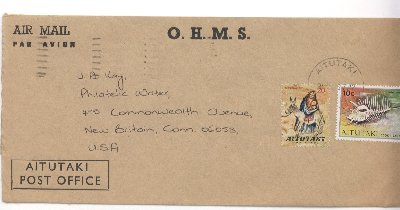 AIR MAIL
PAR AVION
O. H. M. S.
AITUTAKI
J. A. Kay,
Philatelic Writer,
Commonwealth Avenue,
New Britain, Conn. 06053,
U.S.A
10c
AITUTAKI
AITUTAKI
AITUTAKI
POST OFFICE